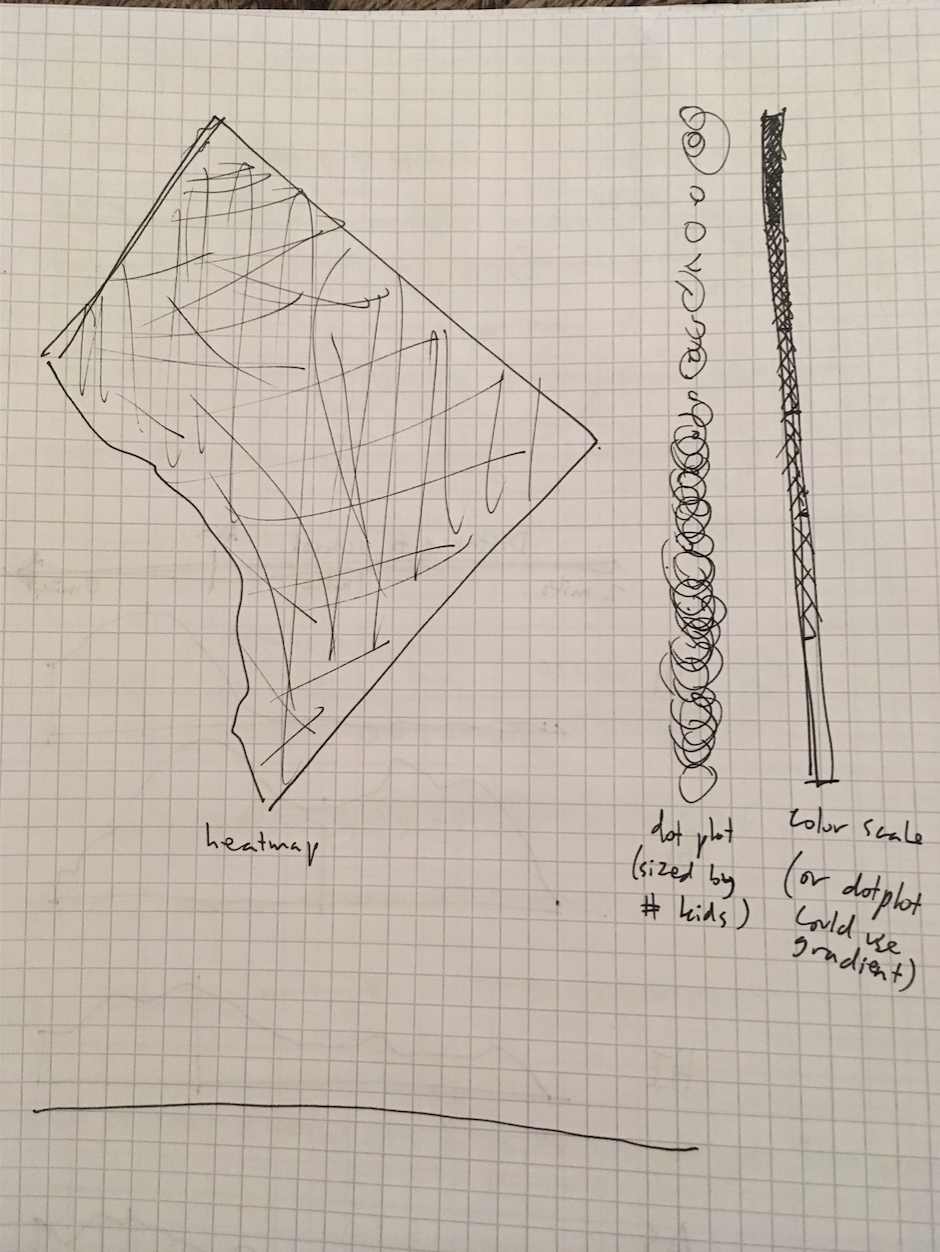 heatmap
dot plot
(sized by
# kids)
color scale
(or dotplot
could use
gradient)